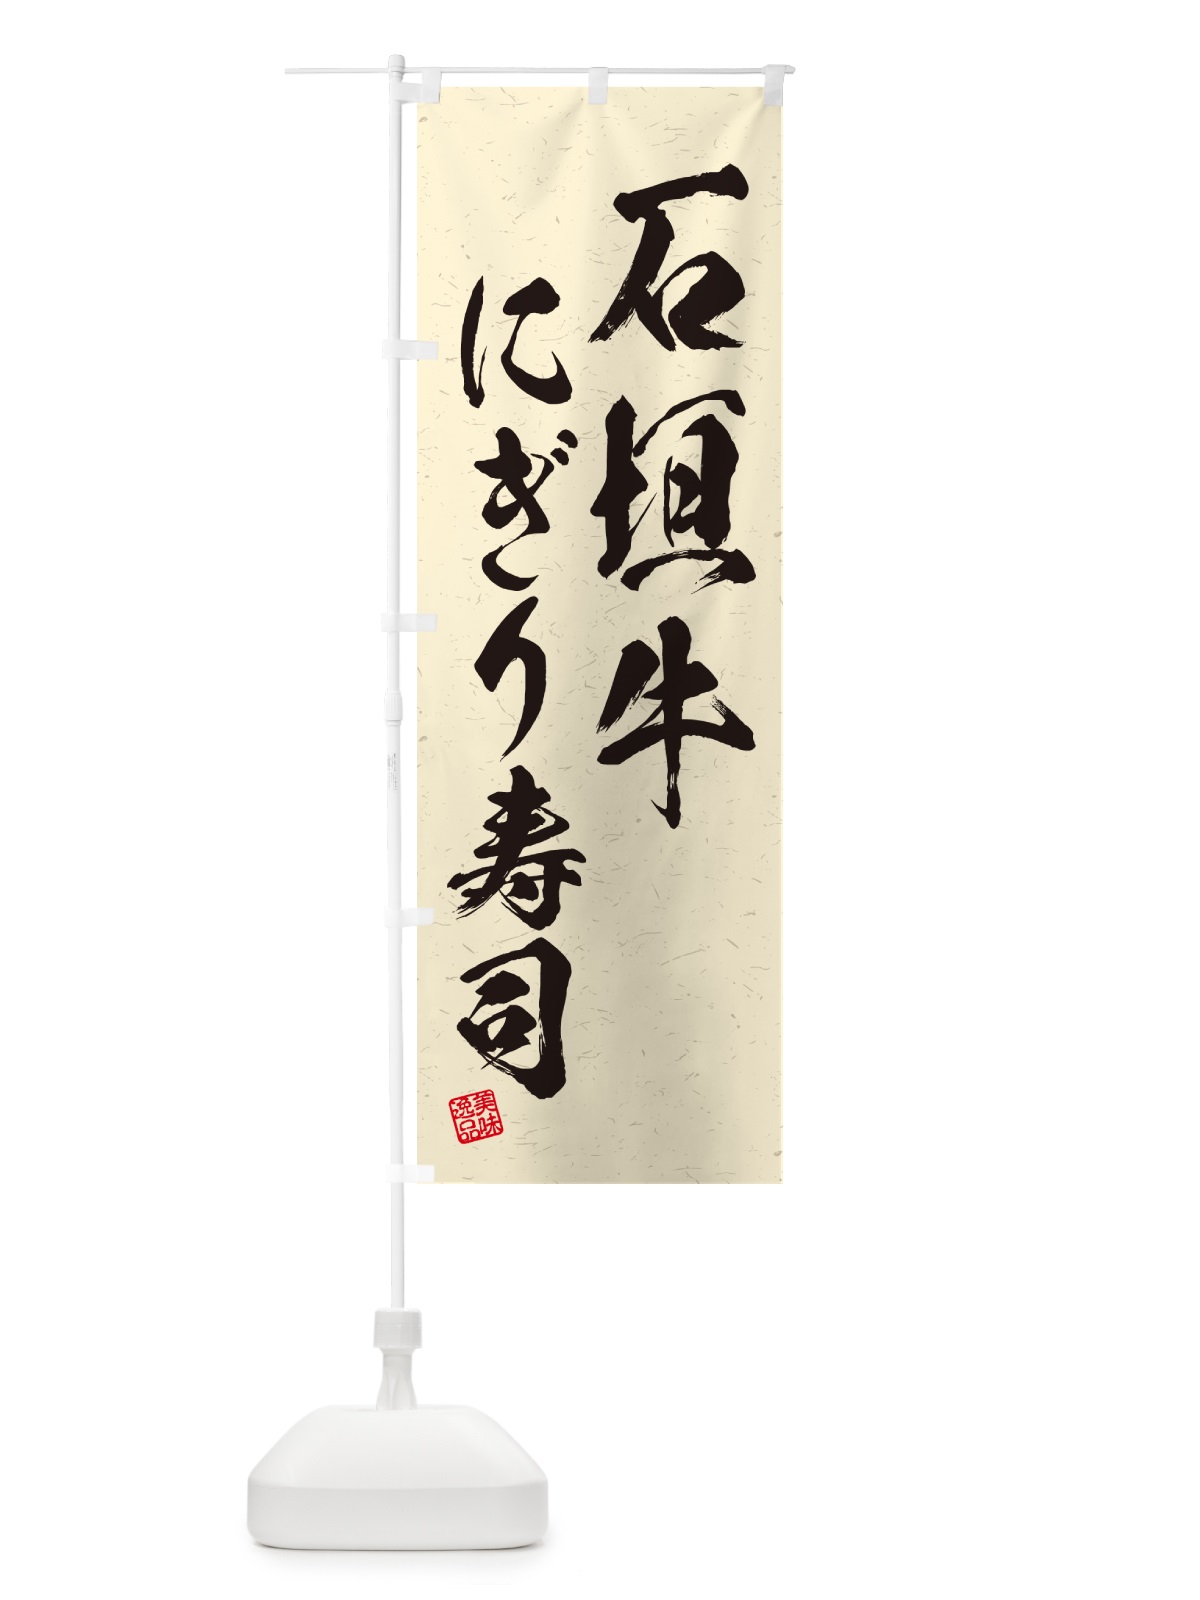 石垣牛
にぎり寿司
美味
逸品